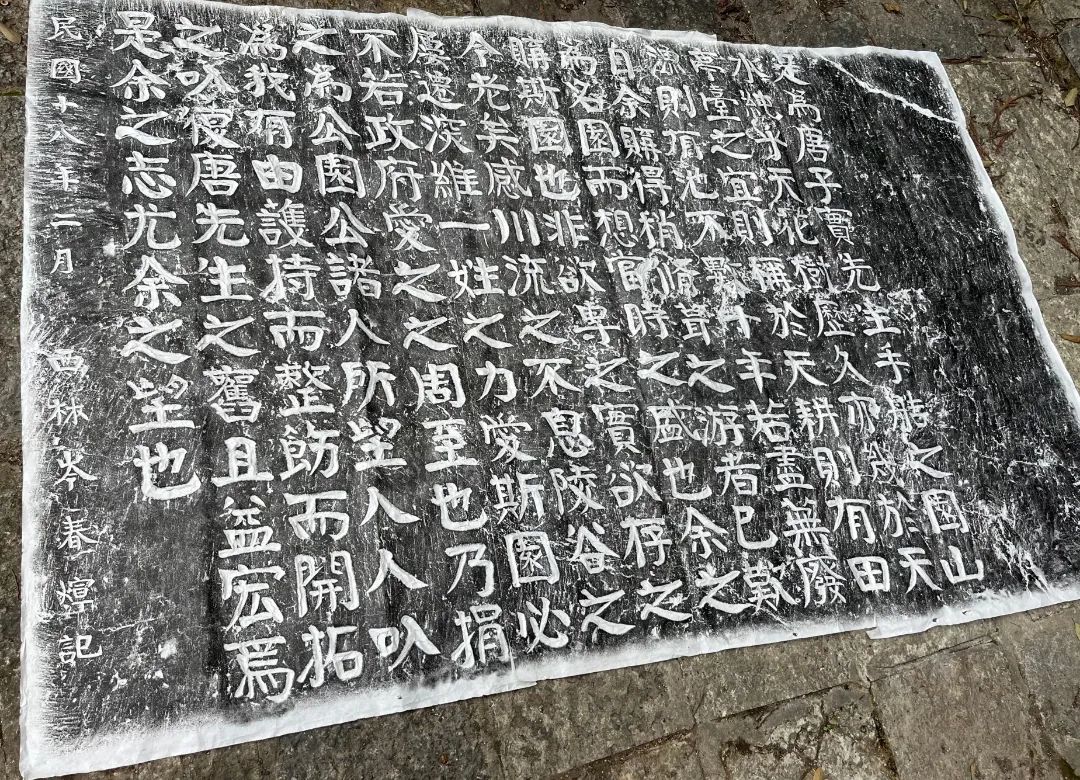 是為唐子實先生手之園山
水純乎天花樹歷久亦幾於天
亭臺之宜則稱於天耕則有田
漁則有池不數十年若盡無廢
自余購得稍脩葺之游者已歎
為名園而想當時之盛也余之
購斯園也非欲專之實欲存之
今老矣感川流之不息陵谷之
屢遷深維一姓之力愛斯園必
不若政府愛之之周至也乃捐
之為公園公諸人所望人人以
為我有由護持而整飭而開拓
之以復唐先生之舊且益宏焉
是余之志尤余之望也
民國十八年二月 西林岑春煊記